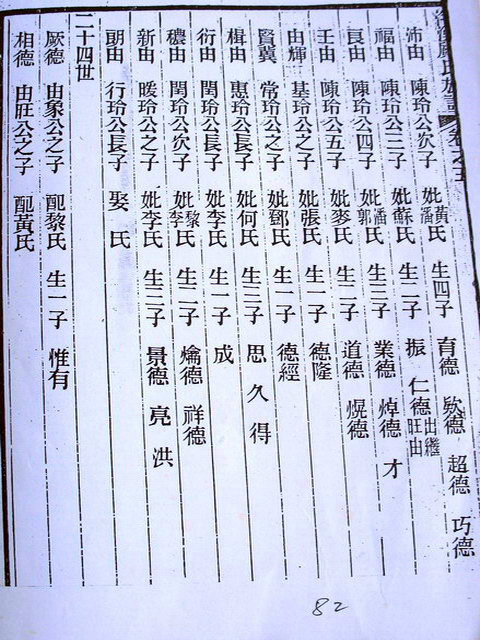 沛由 陳玲公次子 妣黃潘氏 生四子 育德 欽德 超德 巧德
福由 陳玲公三子 妣蘇氏 生二子 振 仁德出繼旺由
良由 陳玲公四子 妣潘郭氏 生三子 業德 焯德 才
壬由 陳玲公五子 妣麥氏 生二子 道德 焜德
由輝 基玲公之子 妣張氏 生一子 德隆
賢冀 常玲公之子 妣鄧氏 生一子 德經
楫由 惠玲公長子 妣何氏 生三子 思 久 得
衍由 閏玲公長子 妣李氏 生一子 成
穠由 閏玲公次子 妣黎李氏 生二子 爚德 祥德
新由 暖玲公之子 妣李氏 生三子 景德 亮 洪
朗由 行玲公長子 娶 氏
二十四世
厥德 由象公之子 配黎氏 生一子 惟有
相德 由旺公之子 配黃氏
82